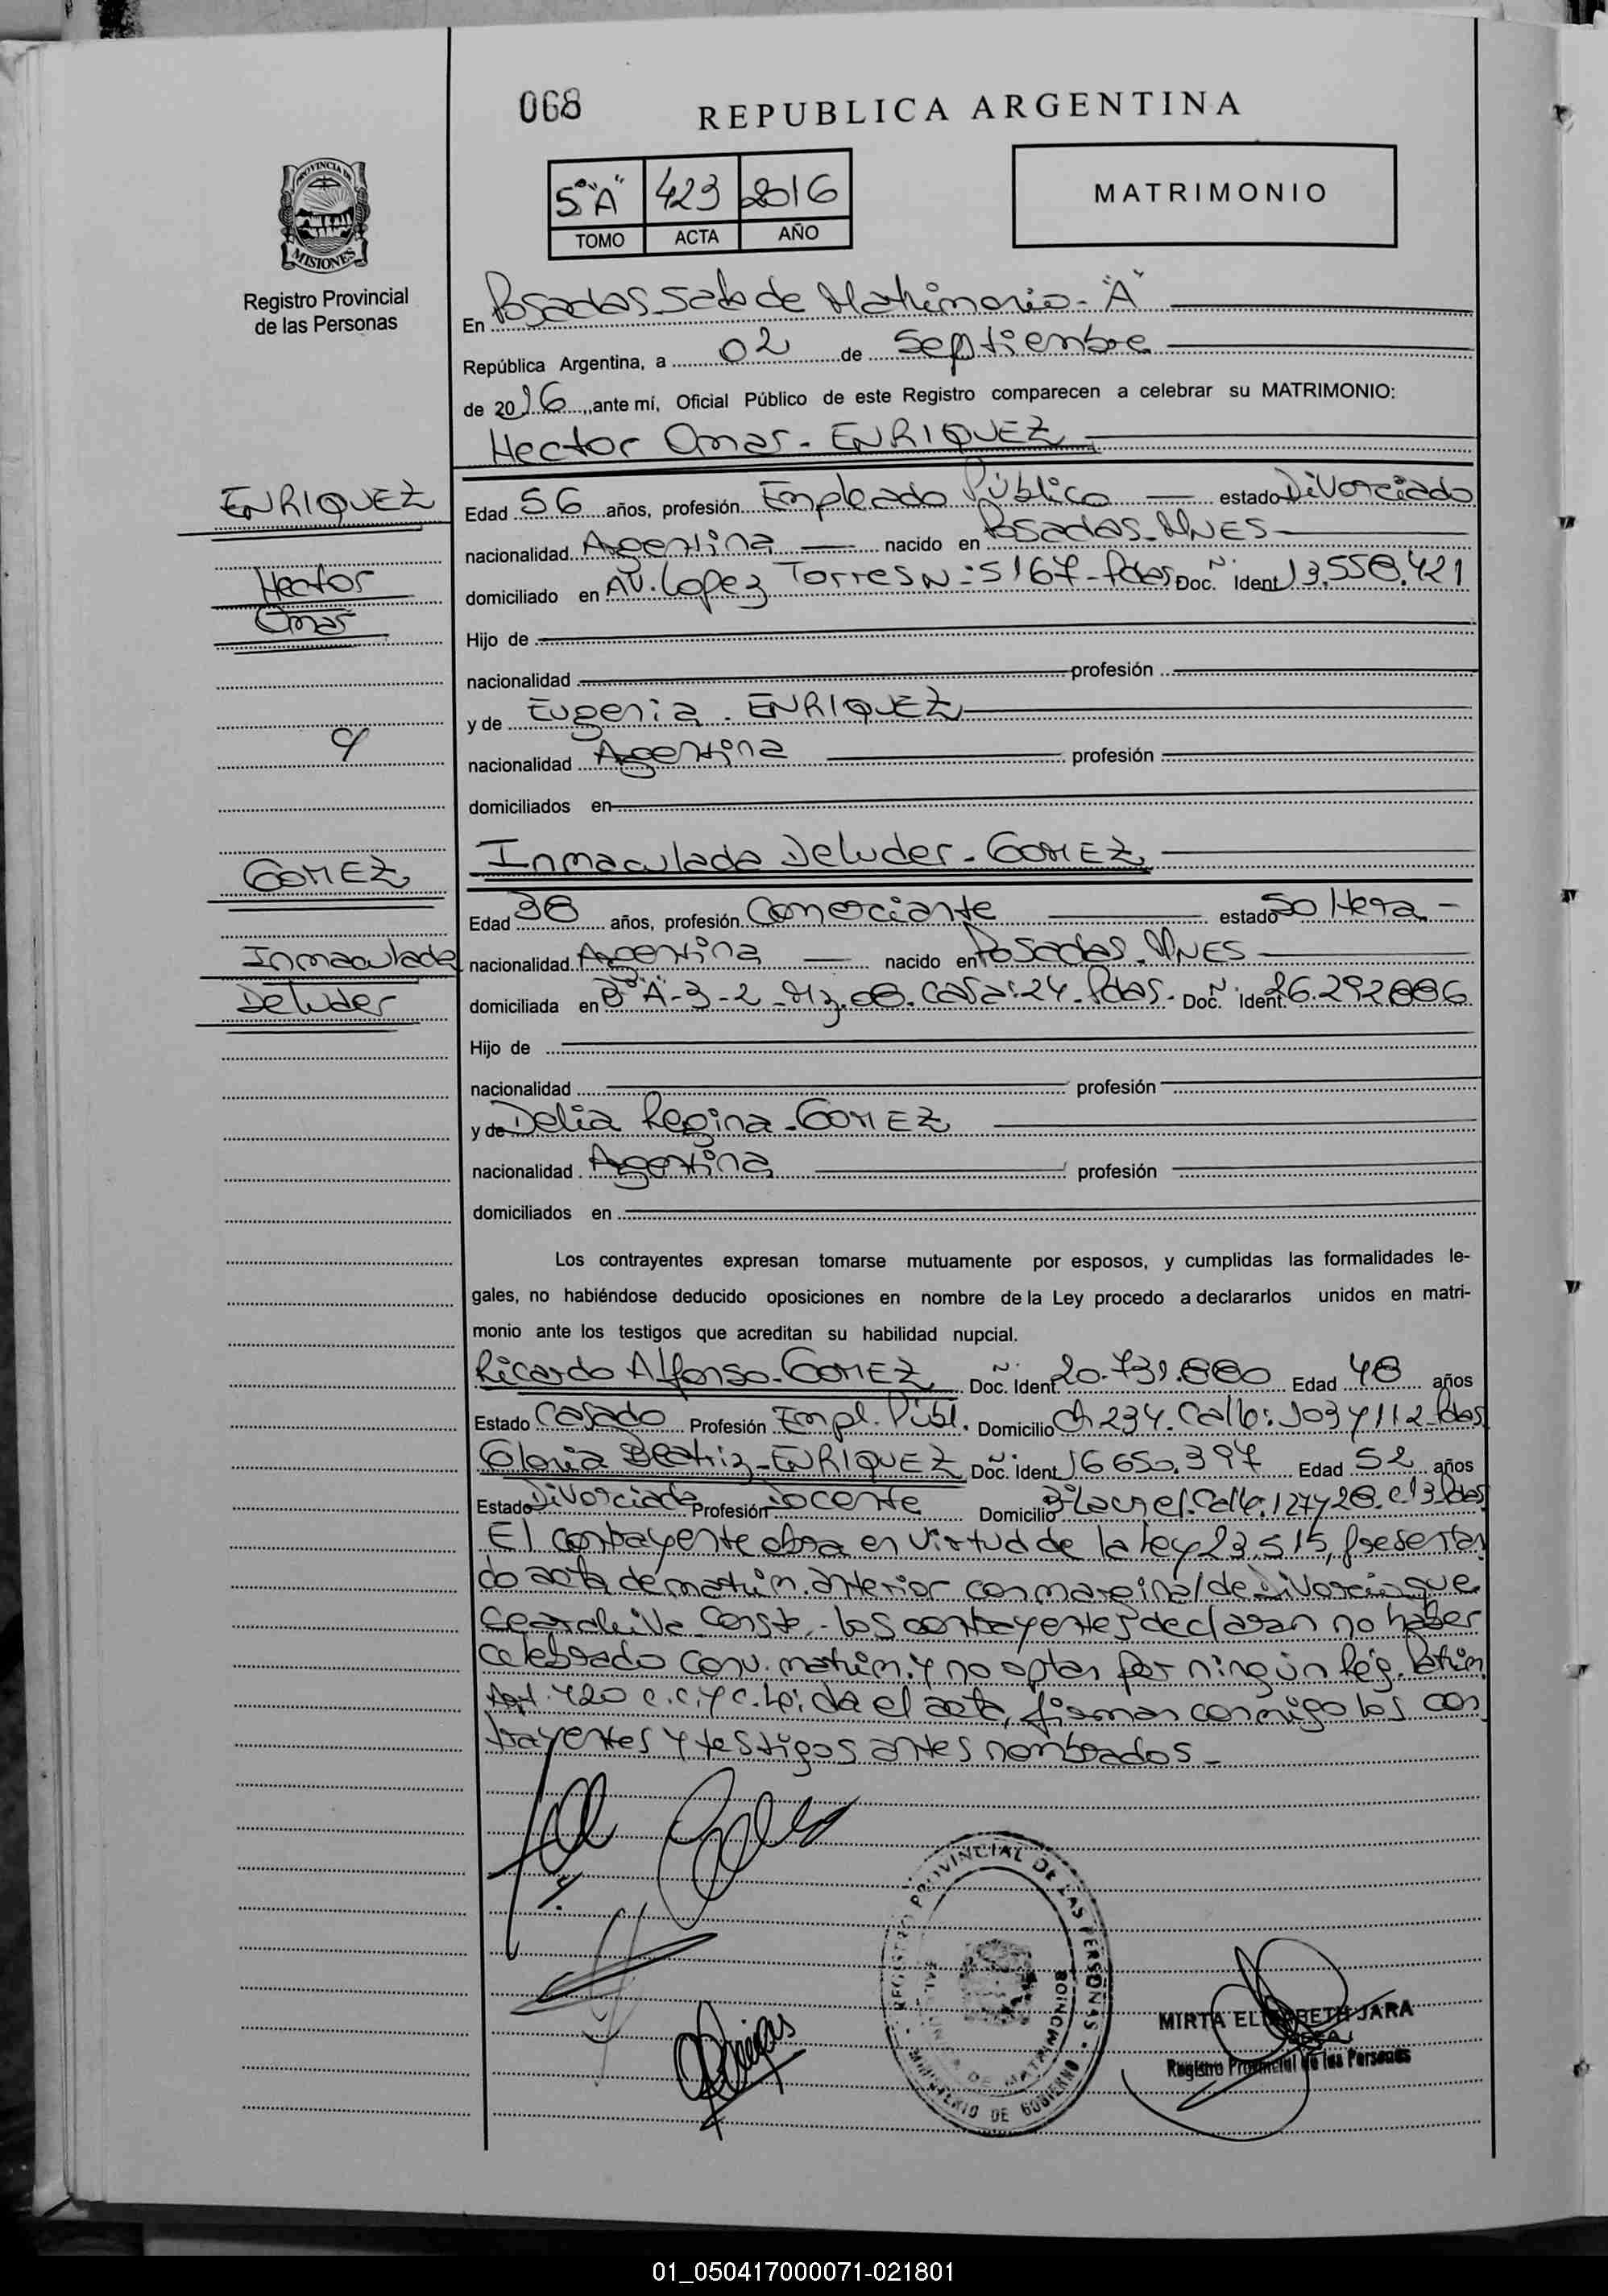 068
REPUBLICA ARGENTINA
5º"A" 423 2016
TOMO ACTA AÑO
MATRIMONIO
PROVINCIA DE
MISIONES
Registro Provincial
de las Personas
En Posadas Sala de Matrimonio - "A"
República Argentina, a 02 de Septiembre
de 2016, ante mí, Oficial Público de este Registro comparecen a celebrar su MATRIMONIO:
Hector Omar - ENRIQUEZ
ENRIQUEZ
Hector
Omar
c/
GOMEZ
Inmaculada
Deluder
Edad 56 años, profesión Empleado Público estado Divorciado
nacionalidad Argentina nacido en Posadas - MNES
domiciliado en AV. Lopez Torres Nº 5167 - Pdas. Doc. Ident 13.558.421
Hijo de
nacionalidad profesión
y de Eugenia - ENRIQUEZ
nacionalidad Argentina profesión
domiciliados en
Inmaculada Deluder - GOMEZ
Edad 38 años, profesión Comerciante estado Soltera -
nacionalidad Argentina nacido en Posadas - MNES
domiciliada en "A"-3-2-Mz.08. Casa: 24 - Pdas. Doc. Ident. 26.292.886
Hijo de
nacionalidad profesión
y de Delia Regina - GOMEZ
nacionalidad Argentina profesión
domiciliados en
Los contrayentes expresan tomarse mutuamente por esposos, y cumplidas las formalidades le-
gales, no habiéndose deducido oposiciones en nombre de la Ley procedo a declararlos unidos en matri-
monio ante los testigos que acreditan su habilidad nupcial.
Ricardo Alfonso - GOMEZ Doc. Ident. 20.731.880 Edad 48 años
Estado Casado Profesión Empl. Públ. Domicilio Ch 234. Calle: 103 y 112 - Pdas
Gloria Beatriz - ENRIQUEZ Doc. Ident 16650.397 Edad 52 años
Estado Divorciada Profesión Docente Domicilio Calle. 127 y 28. Pdas
El contrayente obra en virtud de la ley 23.515, presentan
do acta de matrim. anterior con marginal de Divorcio que
se archiva. Conste. - los contrayentes declaran no haber
celebrado conv. matrim. y no optan por ningún Rég. Patrim.
Art. 420 c.c. y c. Leída el acta, firman conmigo los con
trayentes y testigos antes nombrados -
REGISTRO PROVINCIAL DE LAS PERSONAS
DE MATRIMONIOS
MINISTERIO DE GOBIERNO
MIRTA ELIZABETH JARA
Registro Provincial de las Personas
01_050417000071-021801